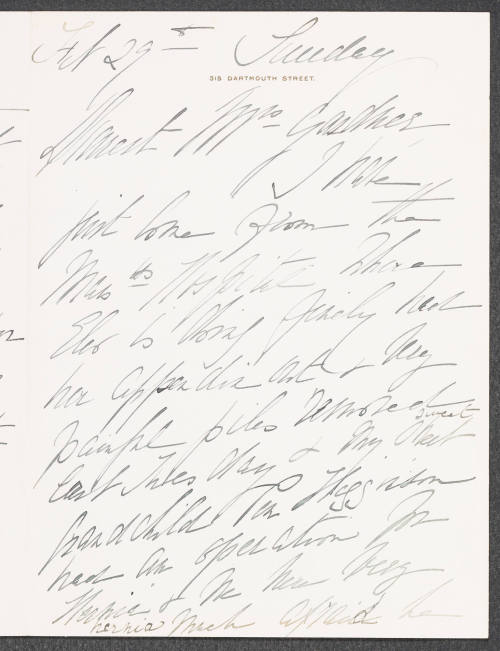 Feb 29th Sunday
315 DARTMOUTH STREET.
Dearest Mrs Gardner
I have
just come from the
Mass tts Hospital where
Eleo is doing finely had
her appendix out & very
painful piles removed
last Tuesday & my sweet
grandchild Higginson
had an operation for
Hernia & we were very
hernia much afraid he